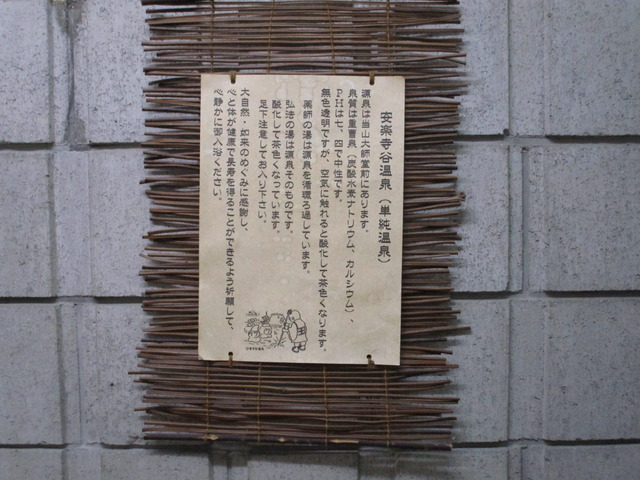 安楽寺谷温泉（単純温泉）
源泉は当山大師堂前にあります。
泉質は重曹泉（炭酸水素ナトリウム、カルシウム）、
PHは七、四で中性です。
無色透明ですが、空気に触れると酸化して茶色くなります。
薬師の湯は源泉を循環ろ過しています。
弘法の湯は源泉そのものです。
酸化して茶色くなっています。
足下注意してお入り下さい。
大自然・如来のめぐみに感謝し、
心と体が健康で長寿を得ることができるよう祈願して、
心静かに御入浴ください。